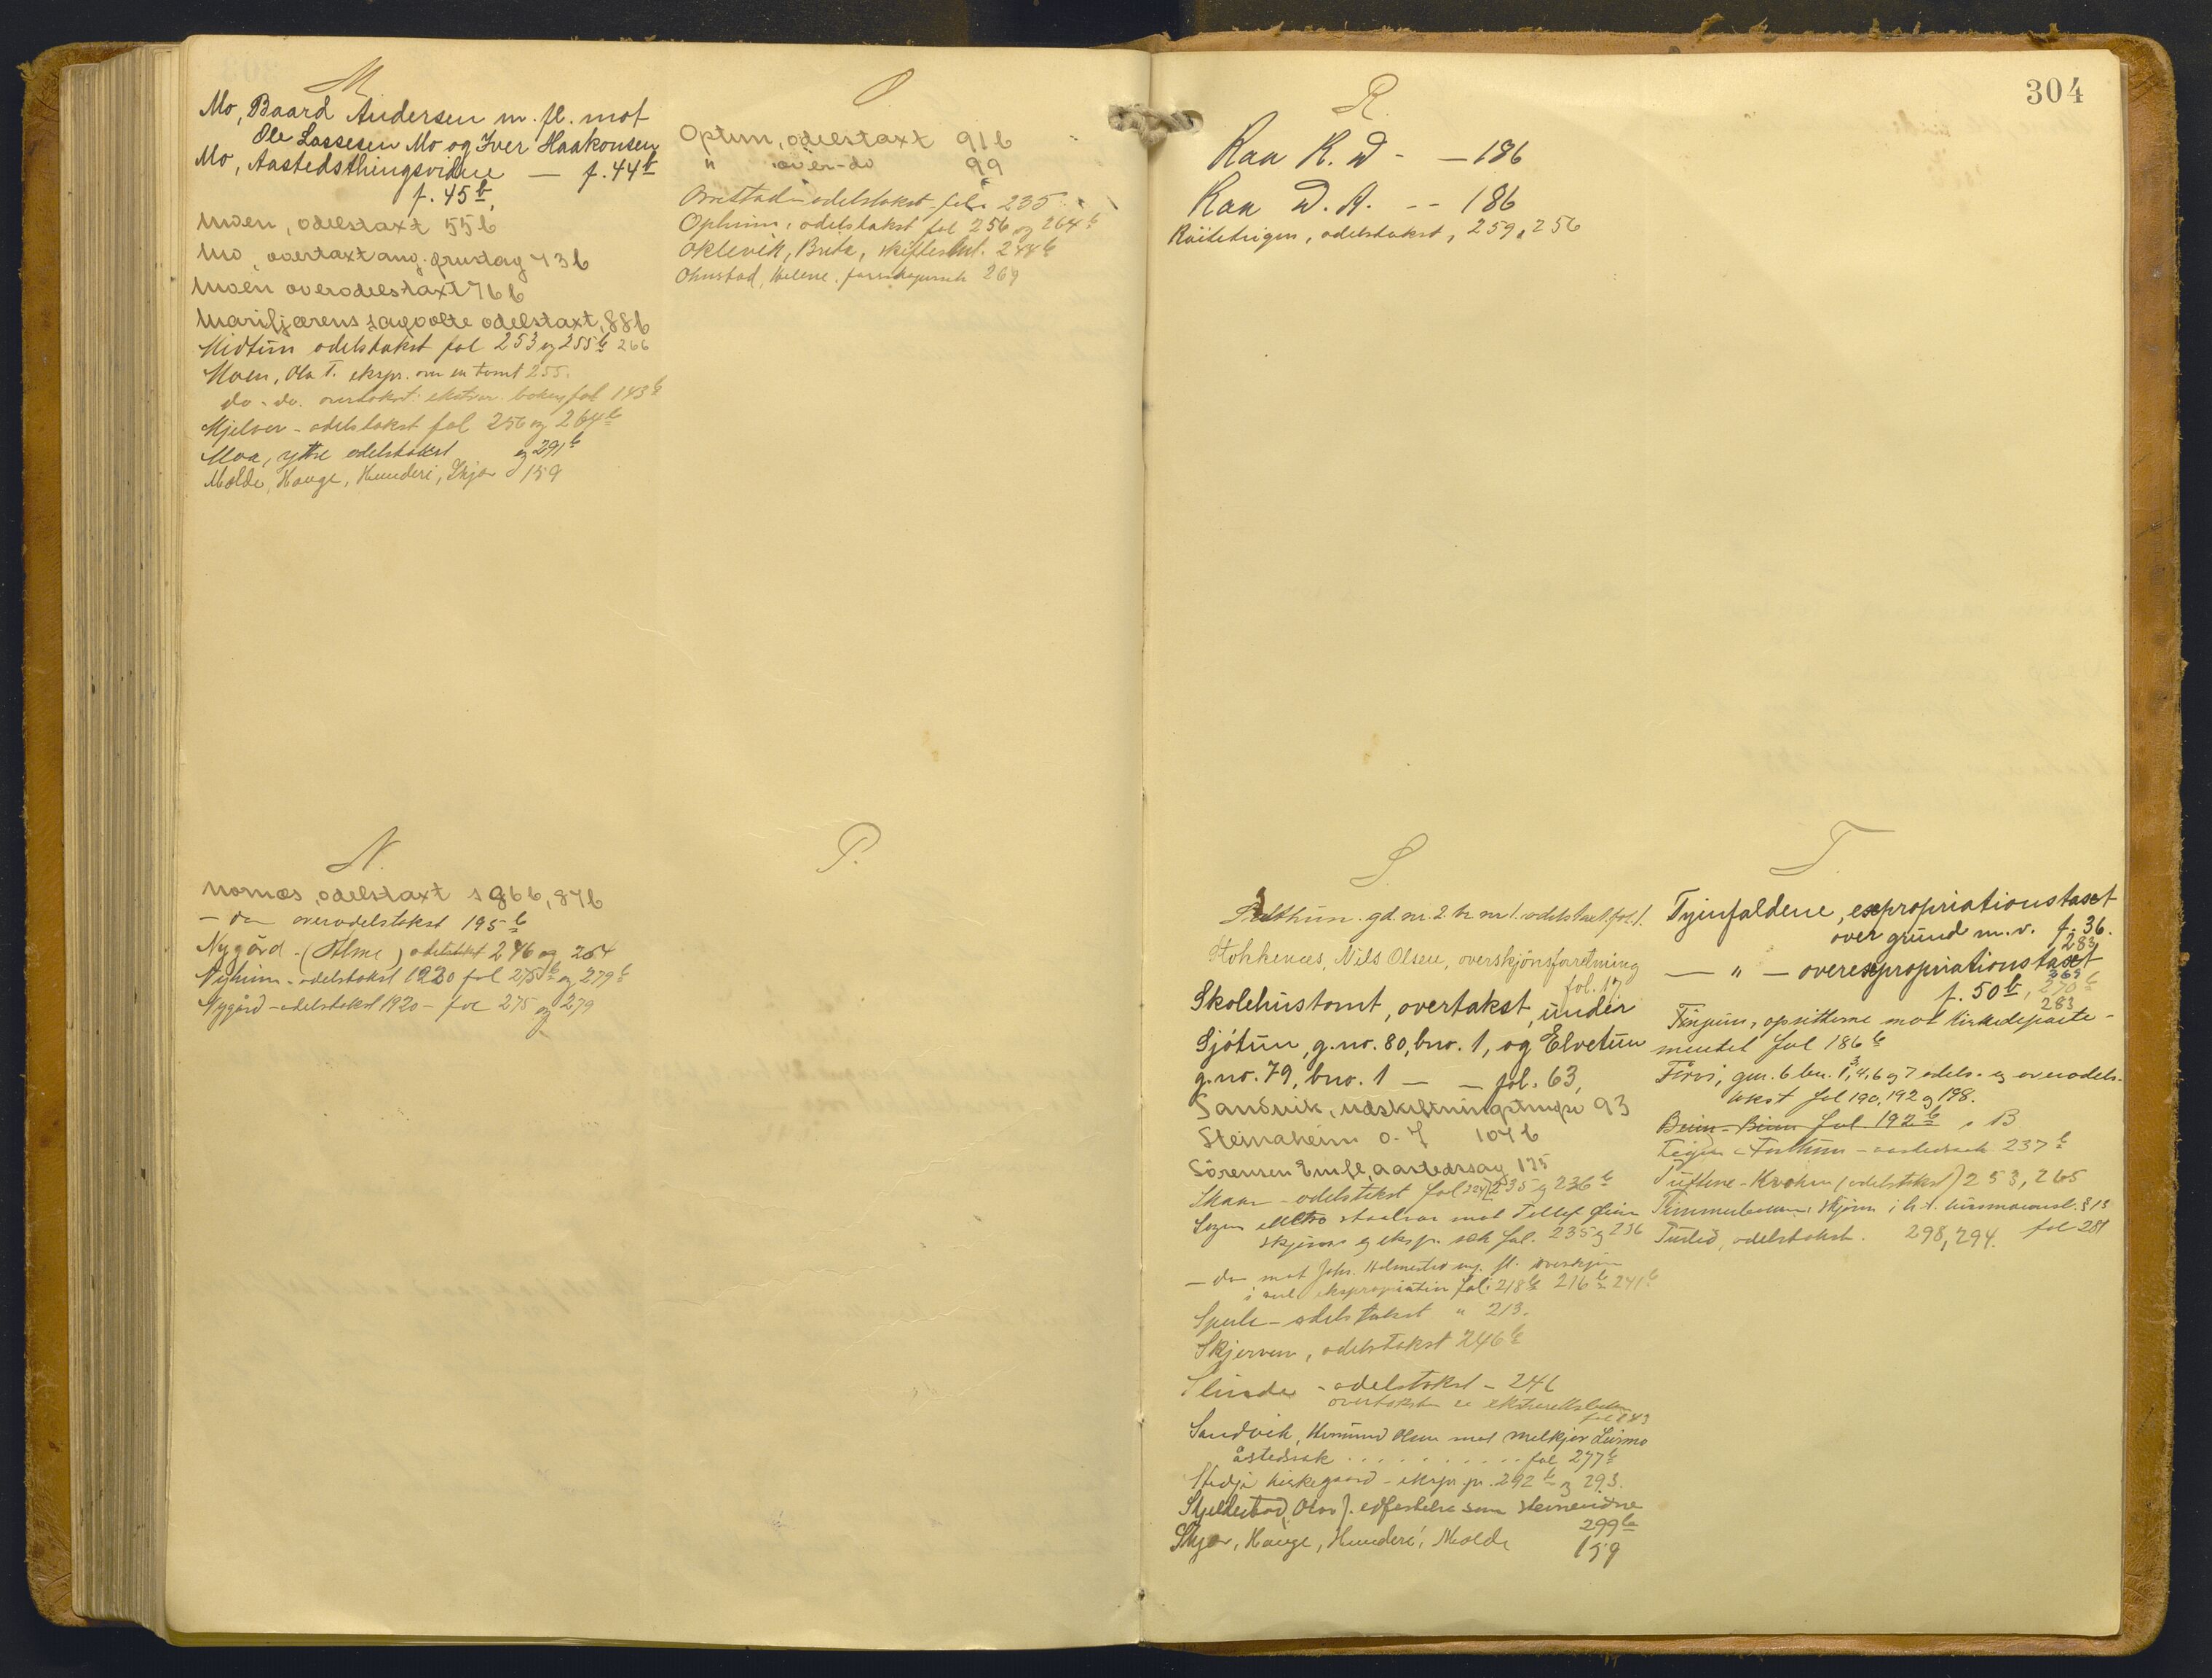 M.
Mo, Baard Andersen m. fl. mot
Ole Lassesen Mo og Iver Haakonsen
Mo, Aastedsthingsvidne — f. 44b
f. 45b,
Moen, odelstaxt 55b
Mo, overtaxt ang. grustag 73b
Moen overodelstaxt 76b
Marifjærens odelstaxt, 88b
Midtun odelstakst fol 253 og 255b 266
Moen, Ola T. ekspr. om en tomt 255.
do - do. overtakst: fol 143b
Mjelver - odelstakst fol 256 og 264b
Moa, ytre odelstakst og 291b
Molde, Hauge, Hunderi, Skjør 159
O
Optun, odelstaxt 91b
" over-do 99
Orrestad - odelstakst fol. 235
Optun, odelstakst fol 256 og 264b
Oklevik, Brita, 244b
Ohnstad, Helene. 269
N.
Nornes, odelstaxt 86b, 87b
— do overodelstakst 195b
Nygård - (Alme) odelstakst 246 og 254
Nyhum - odelstakst 1920 fol 275b og 279b
Nygård - odelstakst 1920 - fol 275 og 279
P.
304
R.
Raa K. D - — 186
Raa D. A. -- 186
odelstakst, 259, 256
S
gd. nr. 2 br nr 1. odelstaxt fol. 1.
Stokkenæs, Nils Olsen, overskjönsforretning
fol. 17
Skolehustomt, overtakst, under
Sjötun, g.no. 80, bno. 1, og Elvetun
g.no. 79, bno. 1 — — fol. 63,
Sandvik, 93
Steinaheim O. J 104b
Sörensen Emil, aastedssag 175
Skaar - odelstakst fol 224, 235 og 236b
Sogn mot
skjönn og eksp. sak fol. 235 og 236
— do mot Johs. Holmestad m. fl. overskjön
i anl ekspropriation fol: 218b 216b 241b
odelstakst " 213.
Skjerven, odelstakst 246b
Slinde - odelstakst - 246
overtakst se
fol 143
Sandvik, Olsen mot Melkjer
åstedssak . . . . . . . . . . fol 277b
Stedje kirkegaard - ekspr. pr. 292b og 293.
Skjeldestad, Olav J. edfestelse som stevnevidne
299b
Skjør, Hauge, Hunderi, Molde 159
T
Tyinfaldene, expropriationstaxt
over grund m.v. f. 36.
283
— " — overexpropriationstaxt
f. 50b, 269 270b
283
opsitterne mot Kirkedeparte-
mentet fol 186b
gnr. 6 bnr. 1, 3, 4, 6 og 7 odels- og overodels-
takst fol 190, 192 og 198.
fol 192b B
aastedssak 237b
Tuftene - Kroken (odelstakst) 253, 265
skjönn i h. t. § 15
fol 281
odelstakst. 298, 294.